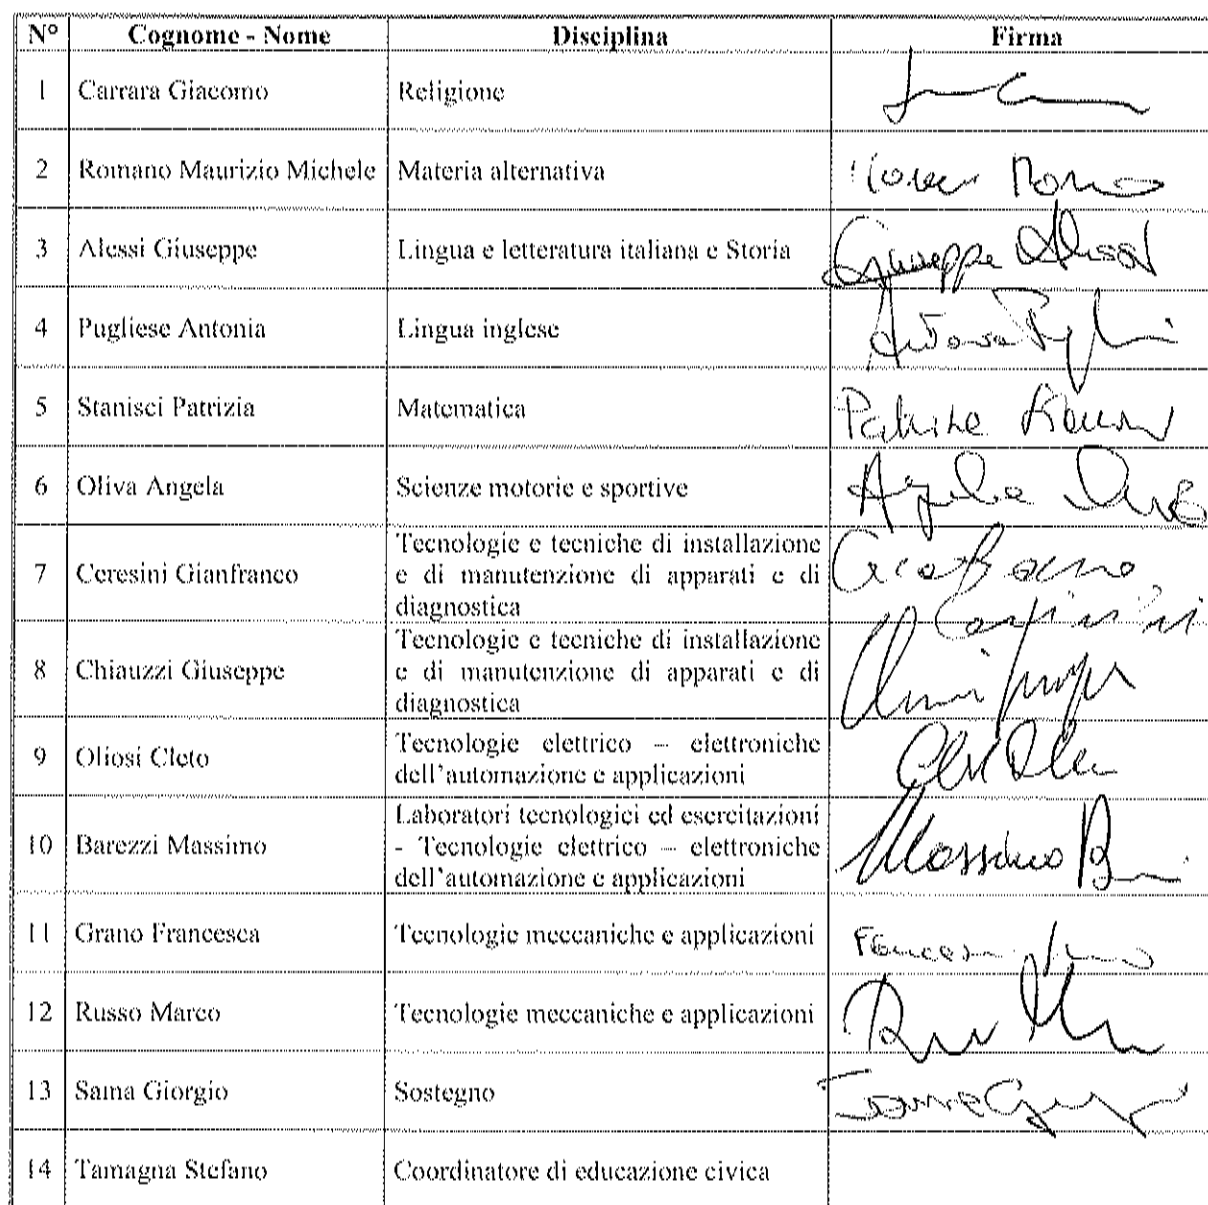 N° Cognome - Nome Disciplina Firma
1 Carrara Giacomo Religione
2 Romano Maurizio Michele Materia alternativa
3 Alessi Giuseppe Lingua e letteratura italiana e Storia Giuseppe Alessi
4 Pugliese Antonia Lingua inglese
5 Stanisci Patrizia Matematica
6 Oliva Angela Scienze motorie e sportive Angela Oliva
7 Ceresini Gianfranco Tecnologie e tecniche di installazione
e di manutenzione di apparati e di
diagnostica
8 Chiauzzi Giuseppe Tecnologie e tecniche di installazione
e di manutenzione di apparati e di
diagnostica
9 Oliosi Cleto Tecnologie elettrico – elettroniche
dell'automazione e applicazioni
10 Barezzi Massimo Laboratori tecnologici ed esercitazioni
- Tecnologie elettrico – elettroniche
dell'automazione e applicazioni
Massimo
11 Grano Francesca Tecnologie meccaniche e applicazioni
12 Russo Marco Tecnologie meccaniche e applicazioni
13 Sama Giorgio Sostegno
14 Tamagna Stefano Coordinatore di educazione civica